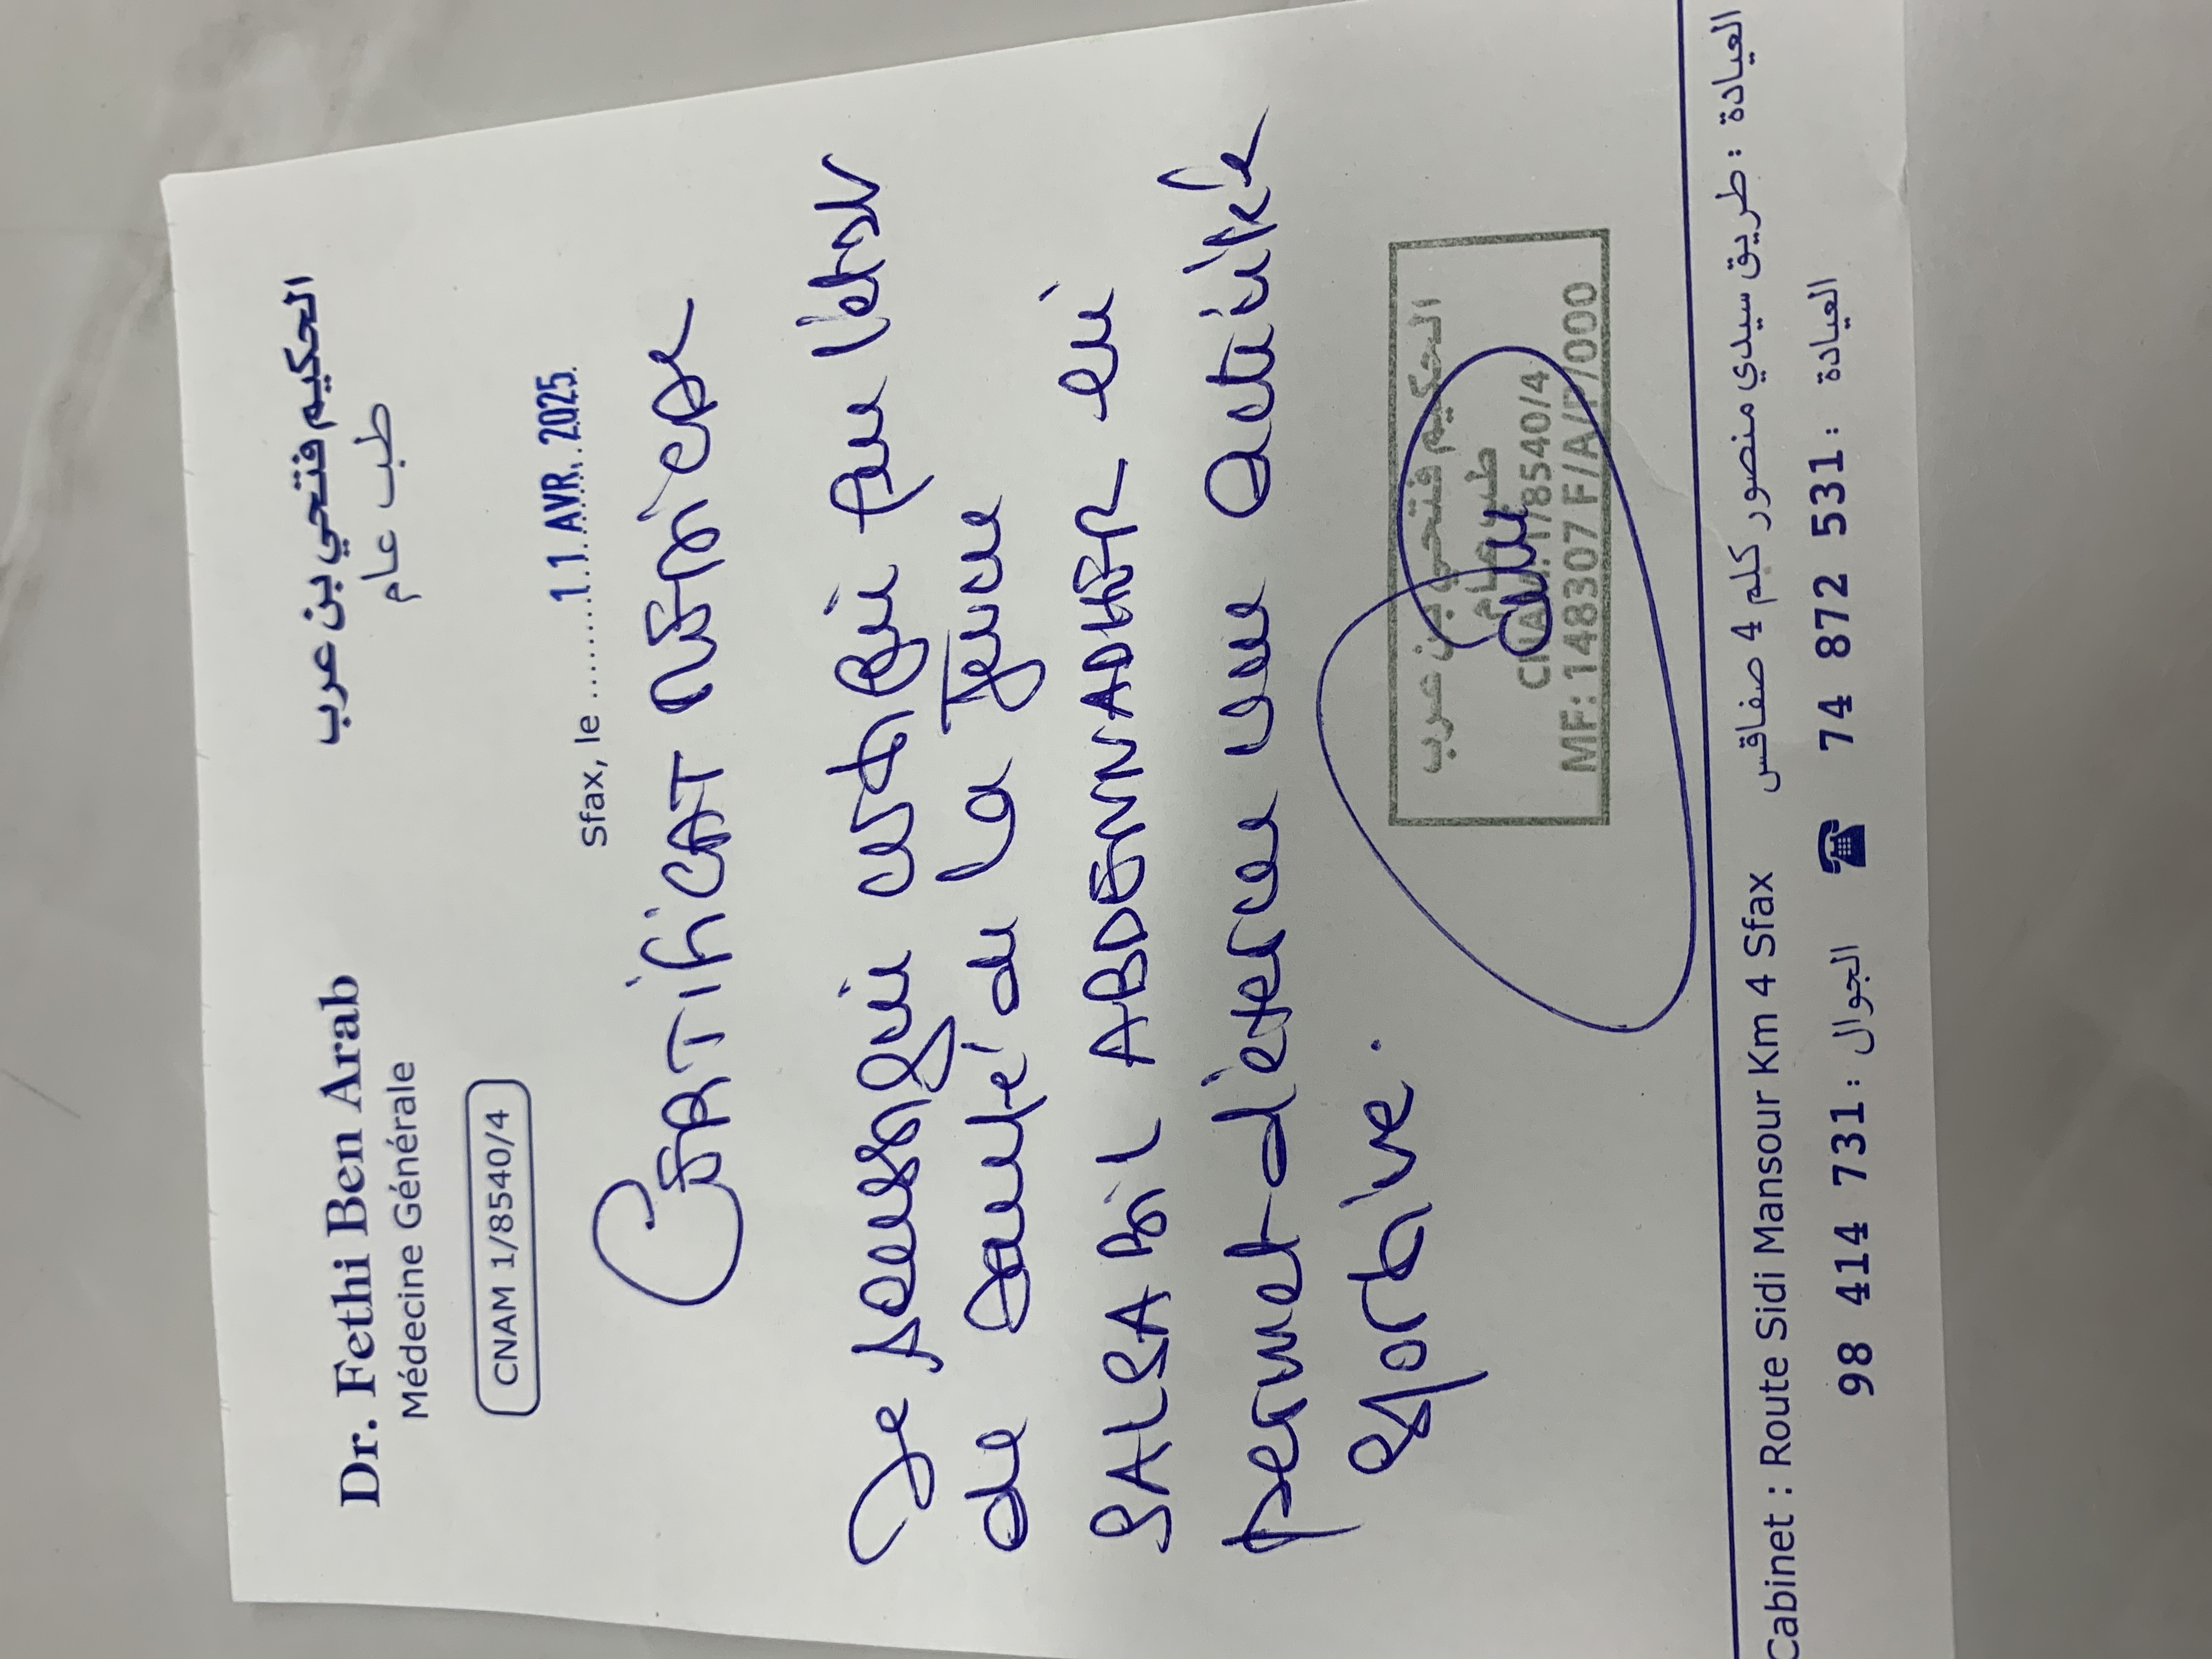 Dr. Fethi Ben Arab
Médecine Générale
CNAM 1/8540/4
الحكيم فتحي بن عرب
طب عام
Sfax, le ........1.1.AVR.2025.
CERTIFICAT MEDICAL
Je soussigné certifie que l'état
de santé de la jeune
SALSABIL ABDENNADHER lui
permet d'exercer une activité
sportive.
الحكيم فتحي بن عرب
طب عام
CNAM:1/8540/4
MF:148307 F/A/P/000
Cabinet : Route Sidi Mansour Km 4 Sfax العيادة : طريق سيدي منصور كلم 4 صفاقس
98 414 731 : الجوال ☎ 74 872 531 : العيادة